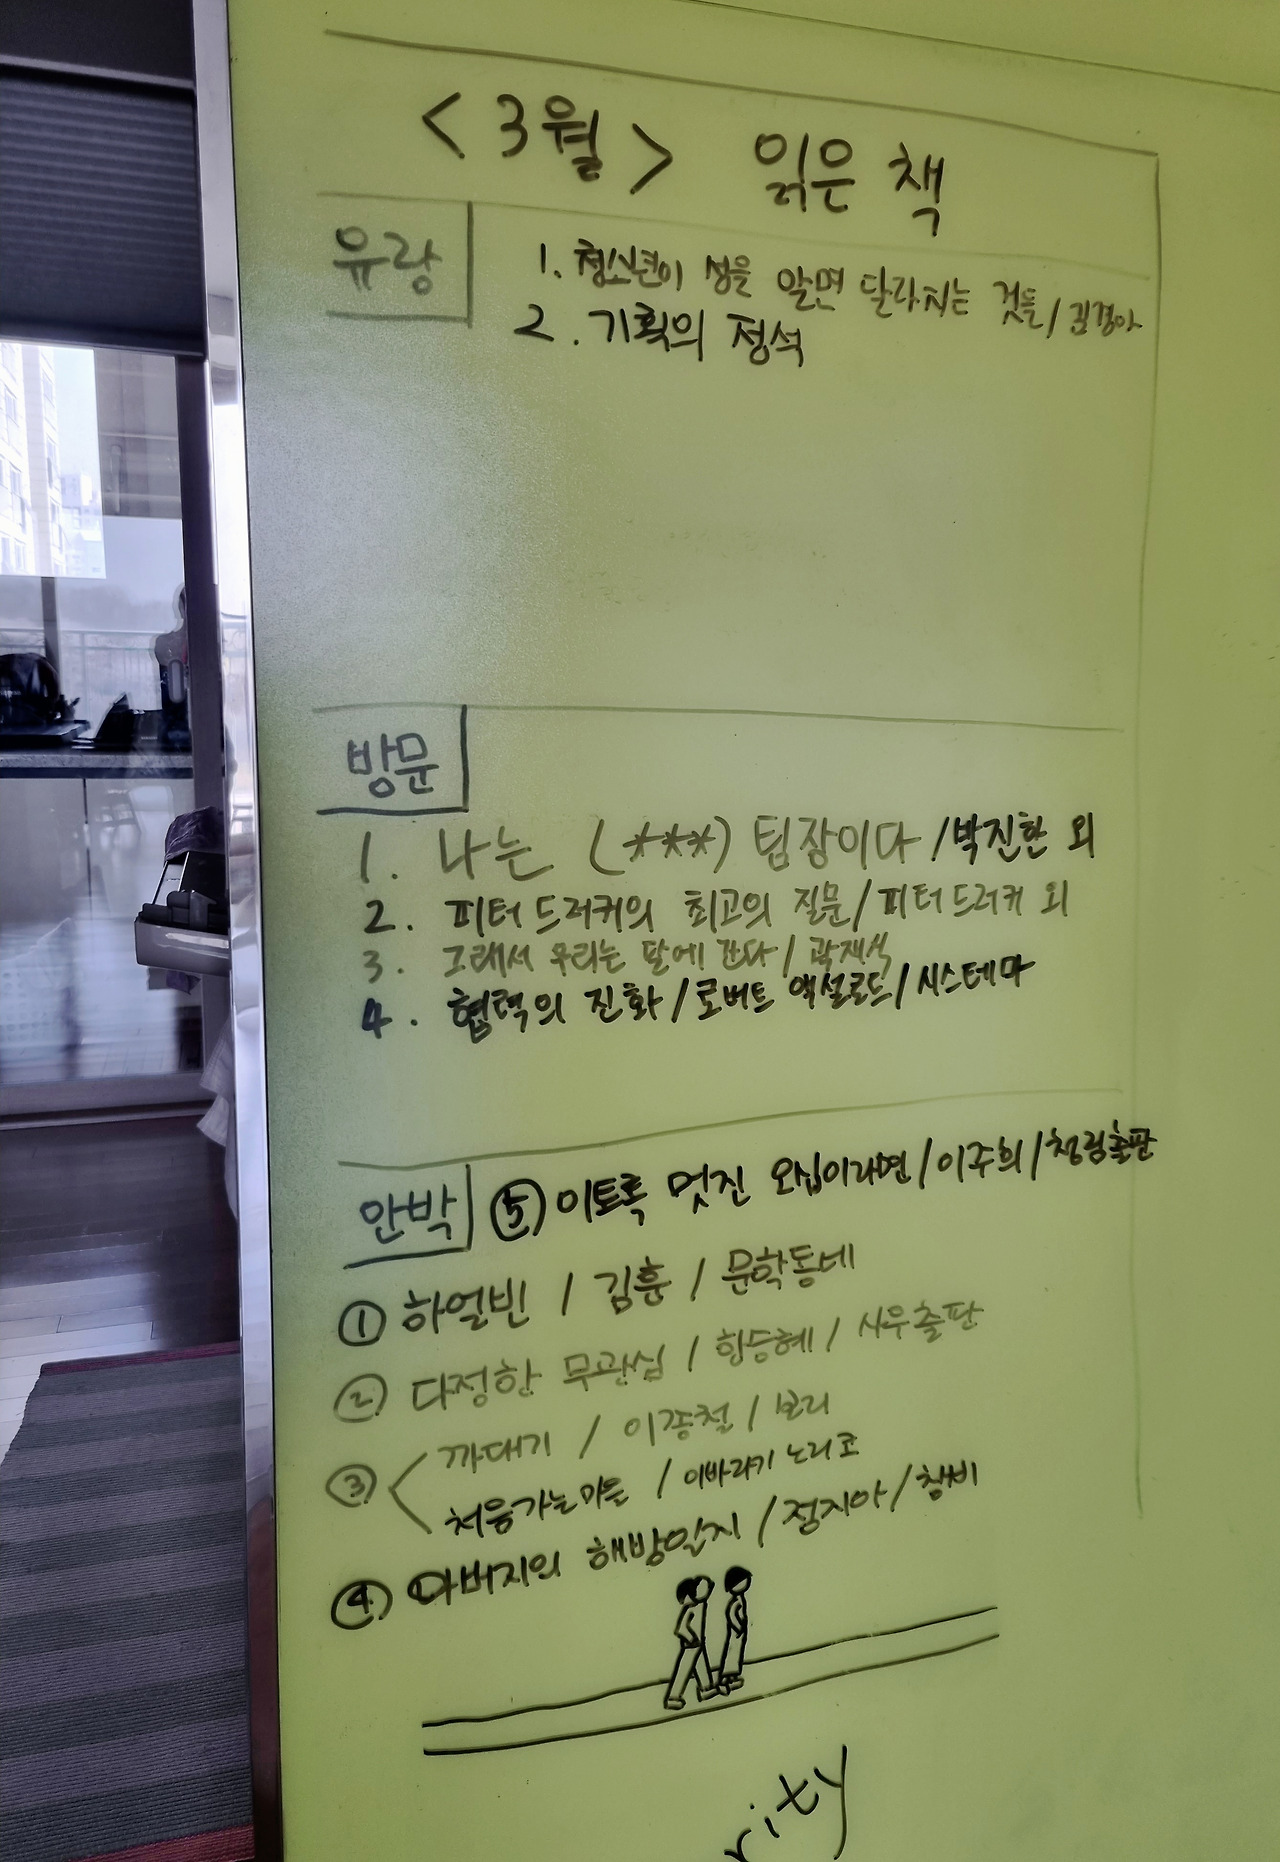 <3월> 읽은 책
유랑
1. 청소년이 성을 알면 달라지는 것들 / 김경아
2. 기획의 정석
방문
1. 나는 (***) 팀장이다 / 박진한 외
2. 피터드러커의 최고의 질문 / 피터드러커 외
3. 그래서 우리는 달에 간다 / 곽재식
4. 협력의 진화 / 로버트 액설로드 / 시스테마
안박
⑤ 이토록 멋진 오십이라면 / 이주희 / 청림출판
① 하얼빈 / 김훈 / 문학동네
② 다정한 무관심 / 함승혜 / 사우출판
③ < 까대기 / 이종철 / 보리
처음가는마을 / 이바라기 노리코
④ 아버지의 해방일지 / 정지아 / 창비
rity